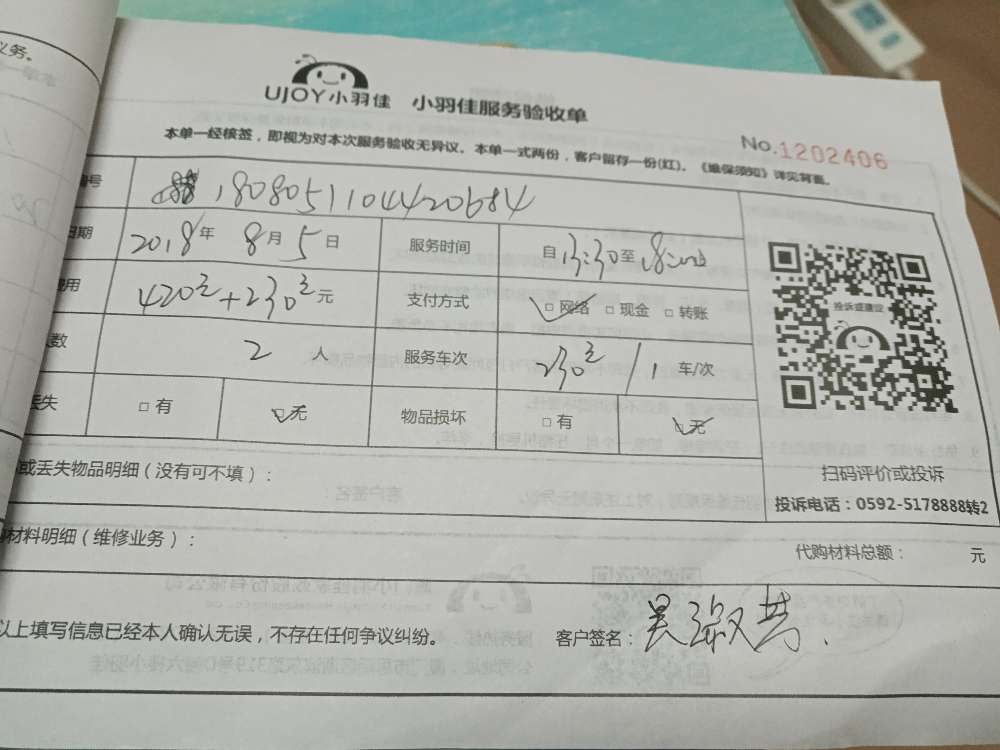 义务。
UJOY小羽佳 小羽佳服务验收单
本单一经核签，即视为对本次服务验收无异议。本单一式两份，客户留存一份(红)。《维保须知》详见背面。
No.1202406
编号 1808051104420684
日期 2018年 8月 5日 服务时间 自13:30至18:00
费用 420元+230元元 支付方式 □网络 □现金 □转账
人数 2 人 服务车次 230元 / 1 车/次
丢失 □有 □无 物品损坏 □有 □无
投诉或建议
扫码评价或投诉
投诉电话：0592-5178888转2
或丢失物品明细（没有可不填）：
材料明细（维修业务）： 代购材料总额： 元
以上填写信息已经本人确认无误，不存在任何争议纠纷。 客户签名：吴